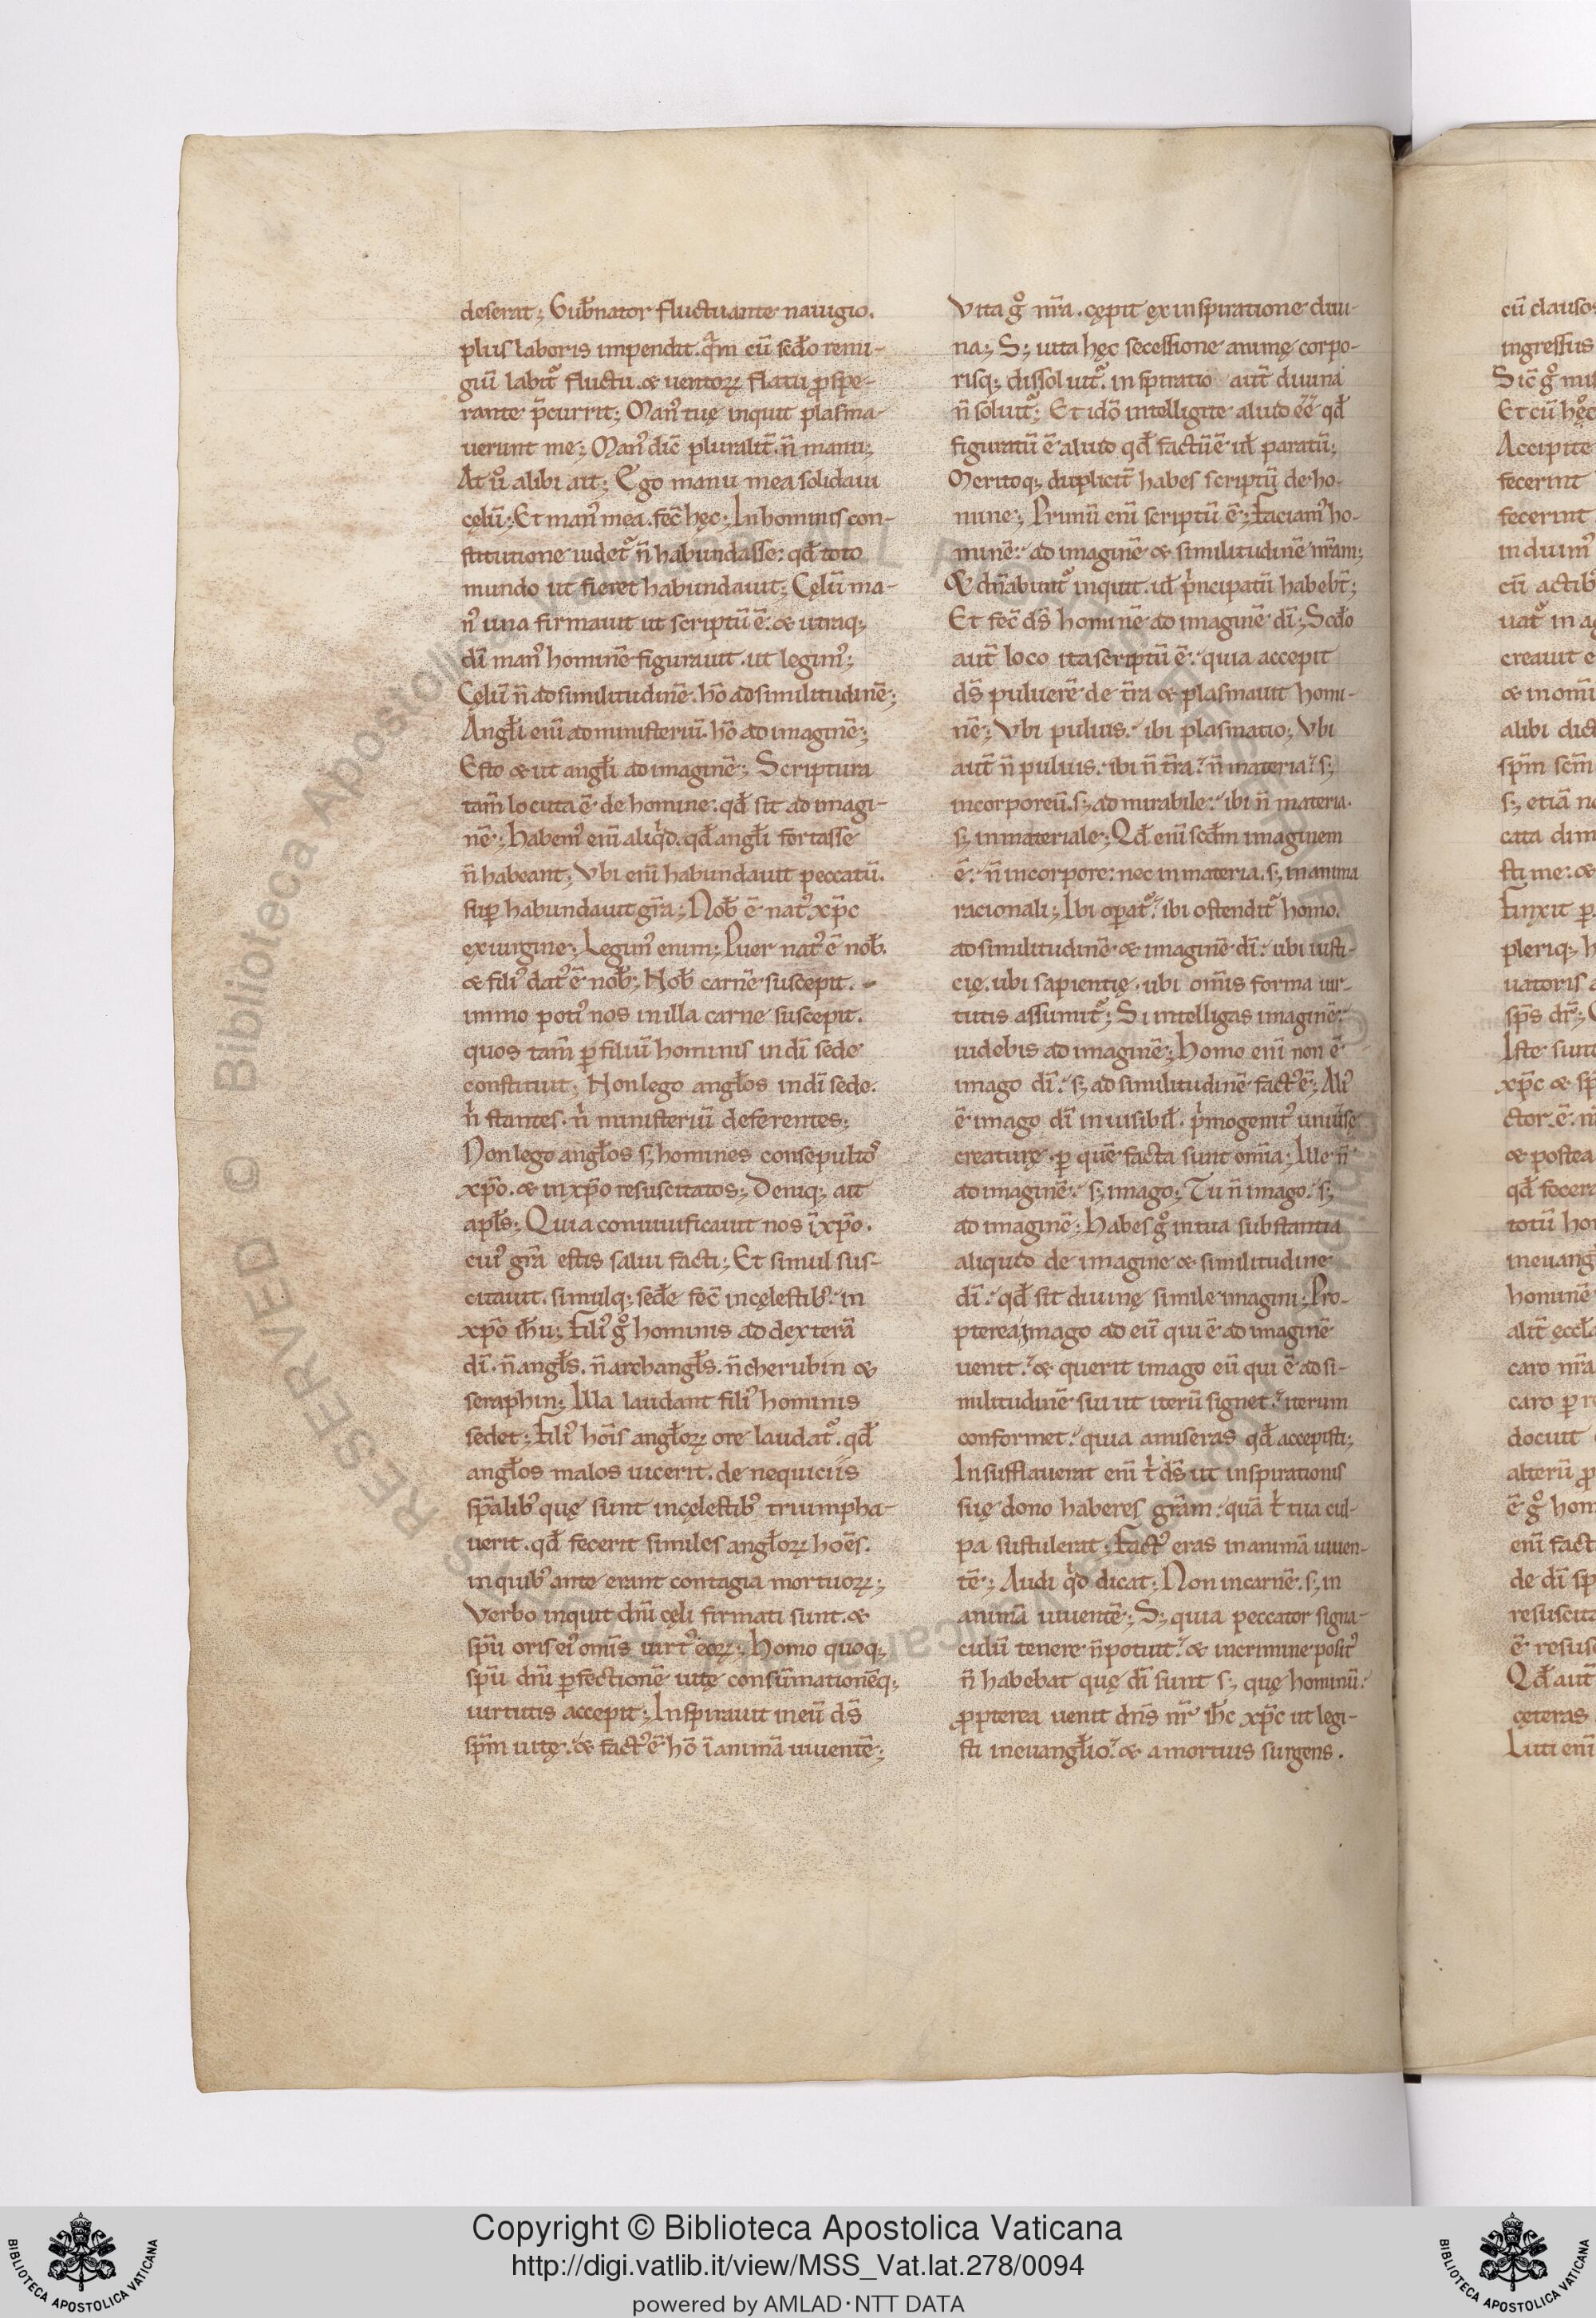 deserat; Gub̄nator fluctuante nauigio.
plus laboris impendit. quā̄m cū sc̄do remi-
giū labit᷒ fluctu. & uentoꝝ flatu ꝓspe-
rante p̄currit; Man᷒ tuę inquit plasma-
uerunt me; Man᷒ dic̄ pluralit̄. n̄ manu;
At ůo alibi ait; Ego manu mea solidaui
cęlū; Et man᷒ mea. fec̄ hęc; In hominis con-
stitutione uidet᷒ n̄ habundasse: qđ toto
mundo ut fieret habundauit; Cęlū ma-
n᷒ una firmauit ut scriptū ē. & utraq;
dī man᷒ hominē figurauit. ut legim᷒;
Cęlū n̄ ad similitudinē. hō ad similitudinē;
Angłi enī ad ministeriū. hō ad imaginē;
Esto & ut angłi ad imaginē; Scriptura
tam̄ locuta ē de homine: qđ sit ad imagi-
nē; habem᷒ enī aliqͥd. qđ angłi fortasse
n̄ habeant; Vbi enī habundauit peccatū.
suꝑ habundauit gr̄a; Nob̄ ē nat᷒ xp̄c
ex uirgine; Legim᷒ enim; Puer nat᷒ ē nob̄.
& fili᷒ dat᷒ ē nob̄; Nob̄ carnē suscepit.
immo poti᷒ nos in illa carne suscepit.
quos tam̄ ꝑ filiū hominis in dī sede
constituit; Non lego angłos in dī sede.
nͥ stantes. nͥ ministeriū deferentes;
Non lego angłos s; homines consepultos
xp̄o. & in xp̄o resuscitatos; Deniq; ait
apłs; Quia conuiuificauit nos ī xp̄o.
cui᷒ gr̄a estis salui facti; Et simul sus-
citauit. simulq; sedē fec̄ in cęlestib᷒. in
xp̄o ih̄u; Fili᷒ gͦ hominis ad dexterā
dī. n̄ angłs. n̄ archangłs. n̄ cherubin &
seraphin; Illa laudant fili᷒ hominis
sedet; Fili᷒ hōis angłoꝝ ore laudat᷒. qđ
angłos malos uicerit. de nequiciis
sp̄alib᷒ quę sunt in cęlestib᷒ triumpha-
uerit. qđ fecerit similes angłoꝝ hoēs.
in quib᷒ ante erant contagia mortuoꝝ;
Verbo inquit dn̄i cęli firmati sunt. &
sp̄u oris ei᷒ om̄is uirt᷒ eoꝝ; homo quoq;
sp̄u dn̄i ꝑfectionē uitę consūmationēq;
uirtutis accepit; Inspirauit in eū d̄s
sp̄m uitę. & fact᷒ ē hō ī animā uiuentē;
Vita gͦ nr̄a. cępit ex inspiratione diui-
na; S; uita hęc secessione animę corpo-
risq; dissoluit᷒. inspiratio aut̄ diuina
n̄ soluit᷒; Et idō intelligite aliud eē qđ
figuratū ē aliud qđ factū ē uł paratū;
Meritoq; duplicit̄ habes scriptū de ho-
mine; Primū enī scriptū ē; Faciam᷒ ho-
minē ad imaginē & similitudinē nr̄am;
& dn̄abunt᷒ inquit. uł pͥncipatū habebt̄;
Et fec̄ d̄s hominē ad imaginē dī; Sc̄do
aut̄ loco ita scriptū ē. quia accepit
d̄s puluerē de t̄ra & plasmauit homi-
nē; Vbi puluis. ibi plasmatio; Vbi
aut̄ n̄ puluis. ibi n̄ t̄ra. n̄ materia. s;
incorporeū. s; admirabile. ibi n̄ materia.
s; inmateriale; Qđ enī scđm imaginem
ē. n̄ in corpore: nec in materia. s; in anima
racionali; Ibi operat᷒. ibi ostendit᷒ homo.
ad similitudinē & imaginē dī. ubi iusti-
cię. ubi sapientię. ubi om̄is forma uir-
tutis assumit᷒; Si intelligas imaginē.
uidebis ad imaginē; Homo enī non ē
imago dī. s; ad similitudinē fact᷒ ē; Ali᷒
ē imago dī inuisibił. pͥmogenit᷒ uniūsę
creaturę. ꝑ quē facta sunt om̄ia; Ille n̄
ad imaginē. s; imago; Tu n̄ imago. s;
ad imaginē; Habes gͦ in tua substantia
aliquid de imagine & similitudine
dī. qđ sit diuinę simile imagini; Pro-
pterea imago ad eū qui ē ad imaginē
uenit. & querit imago eū qui ē ad si-
militudinē sui ut iterū signet. iterum
conformet. quia amiseras qđ accepisti;
Insufflauerat enī tͥ d̄s ut inspirationis
suę dono haberes gr̄am. quā tͥ tua cul-
pa sustulerat; Fact᷒ eras in animā uiuen-
tē; Audi qͥd dicat; Non in carnē. s; in
animā uiuentē; S; quia peccator signa-
culū tenere n̄ potuit. & in crimine posit᷒
n̄ habebat quę dī sunt s; quę hominū.
ꝓpterea uenit dn̄s nr̄ ih̄c xp̄c ut legi-
sti in euangłio. & a mortuis surgens.
cū clauso
ingressus
Sic̄ gͦ
Et cū
Accipite
fecerint
fecerint
in diuim᷒
cū actib᷒
uat᷒ in
creauit
& in omī
alibi dict
sp̄m sc̄m
s; etiā
cata dim
sti me. &
Finxit
pleriq;
uatoris
sp̄s dr̄;
Iste sunt
xp̄c &
ctor. ē.
& postea
qđ fecera
totū ho
in euang
hominē
alit̄ ęccl
caro nr̄a
caro ꝑ
docuit
alterū ꝓ
ē gͦ hom
enī fact
de dī sp
resuscita
ē resus
Qđ aut̄
cęteras
Luti enī
RESERVED © Biblioteca Apostolica Vaticana
Copyright © Biblioteca Apostolica Vaticana
http://digi.vatlib.it/view/MSS_Vat.lat.278/0094
powered by AMLAD·NTT DATA
BIBLIOTECA APOSTOLICA VATICANA
BIBLIOTECA APOSTOLICA VATICANA